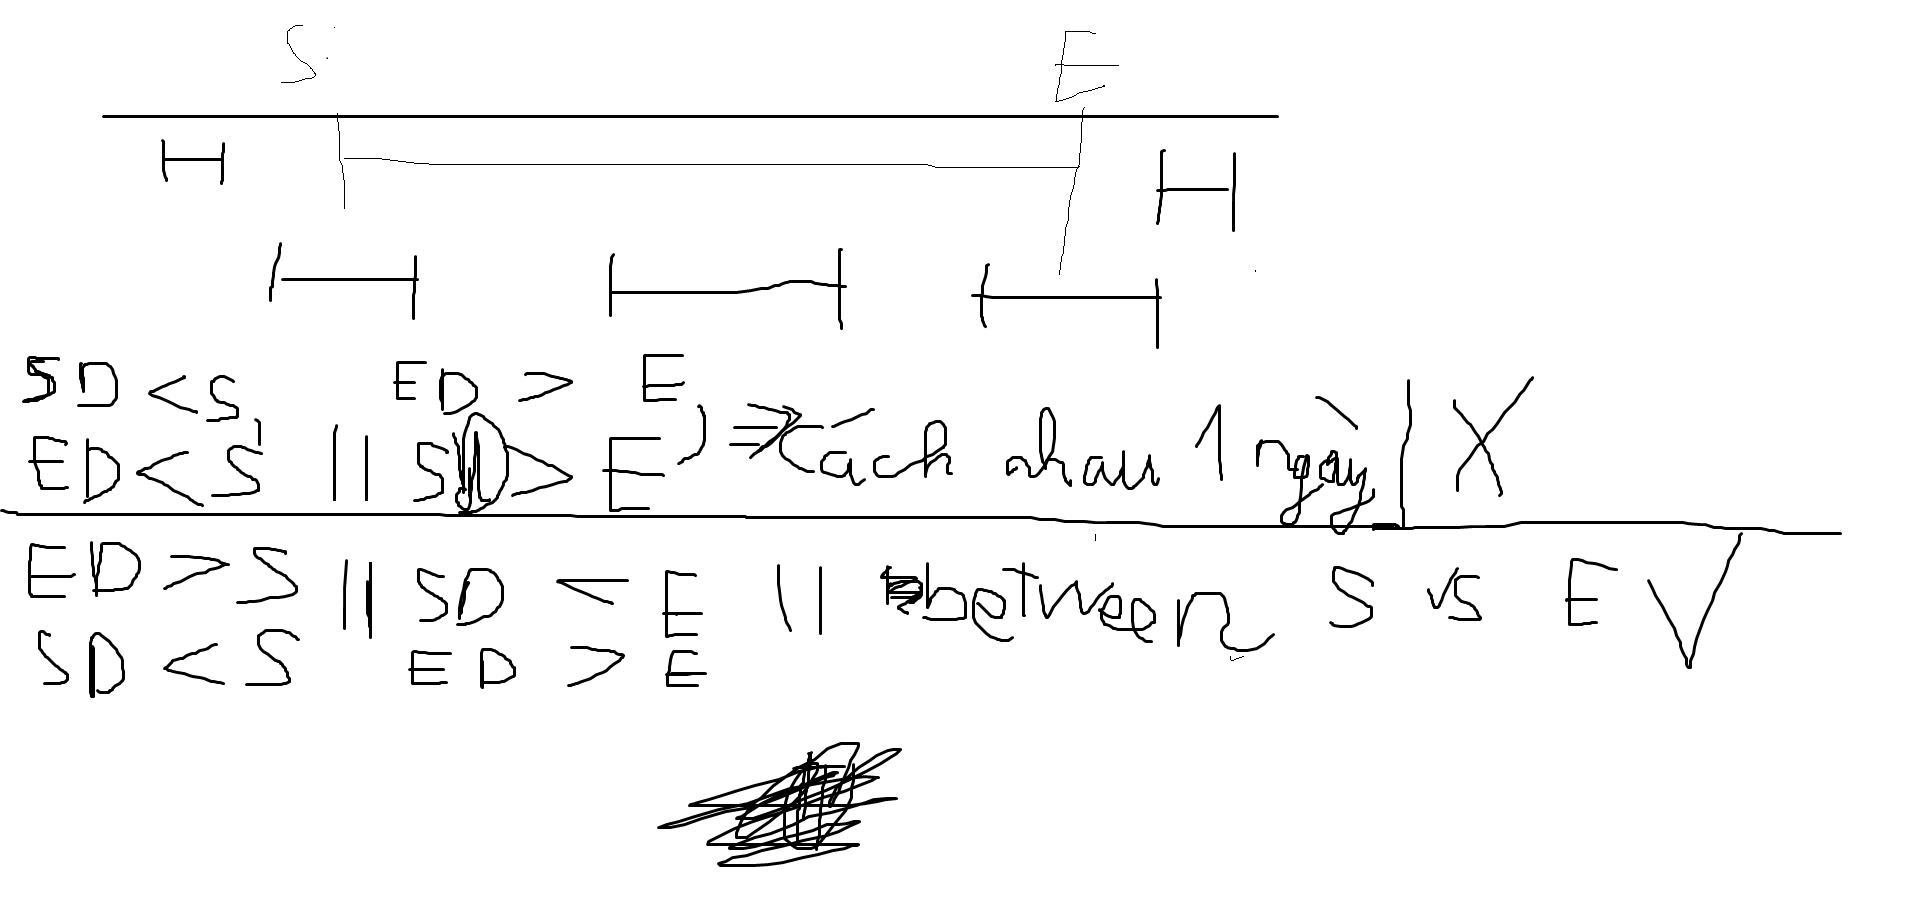 S E
SD < S, ED > E
ED < S || SD > E ) ⇒ Cách nhau 1 ngày | X
ED > S || SD < E || between S vs E V
SD < S ED > E